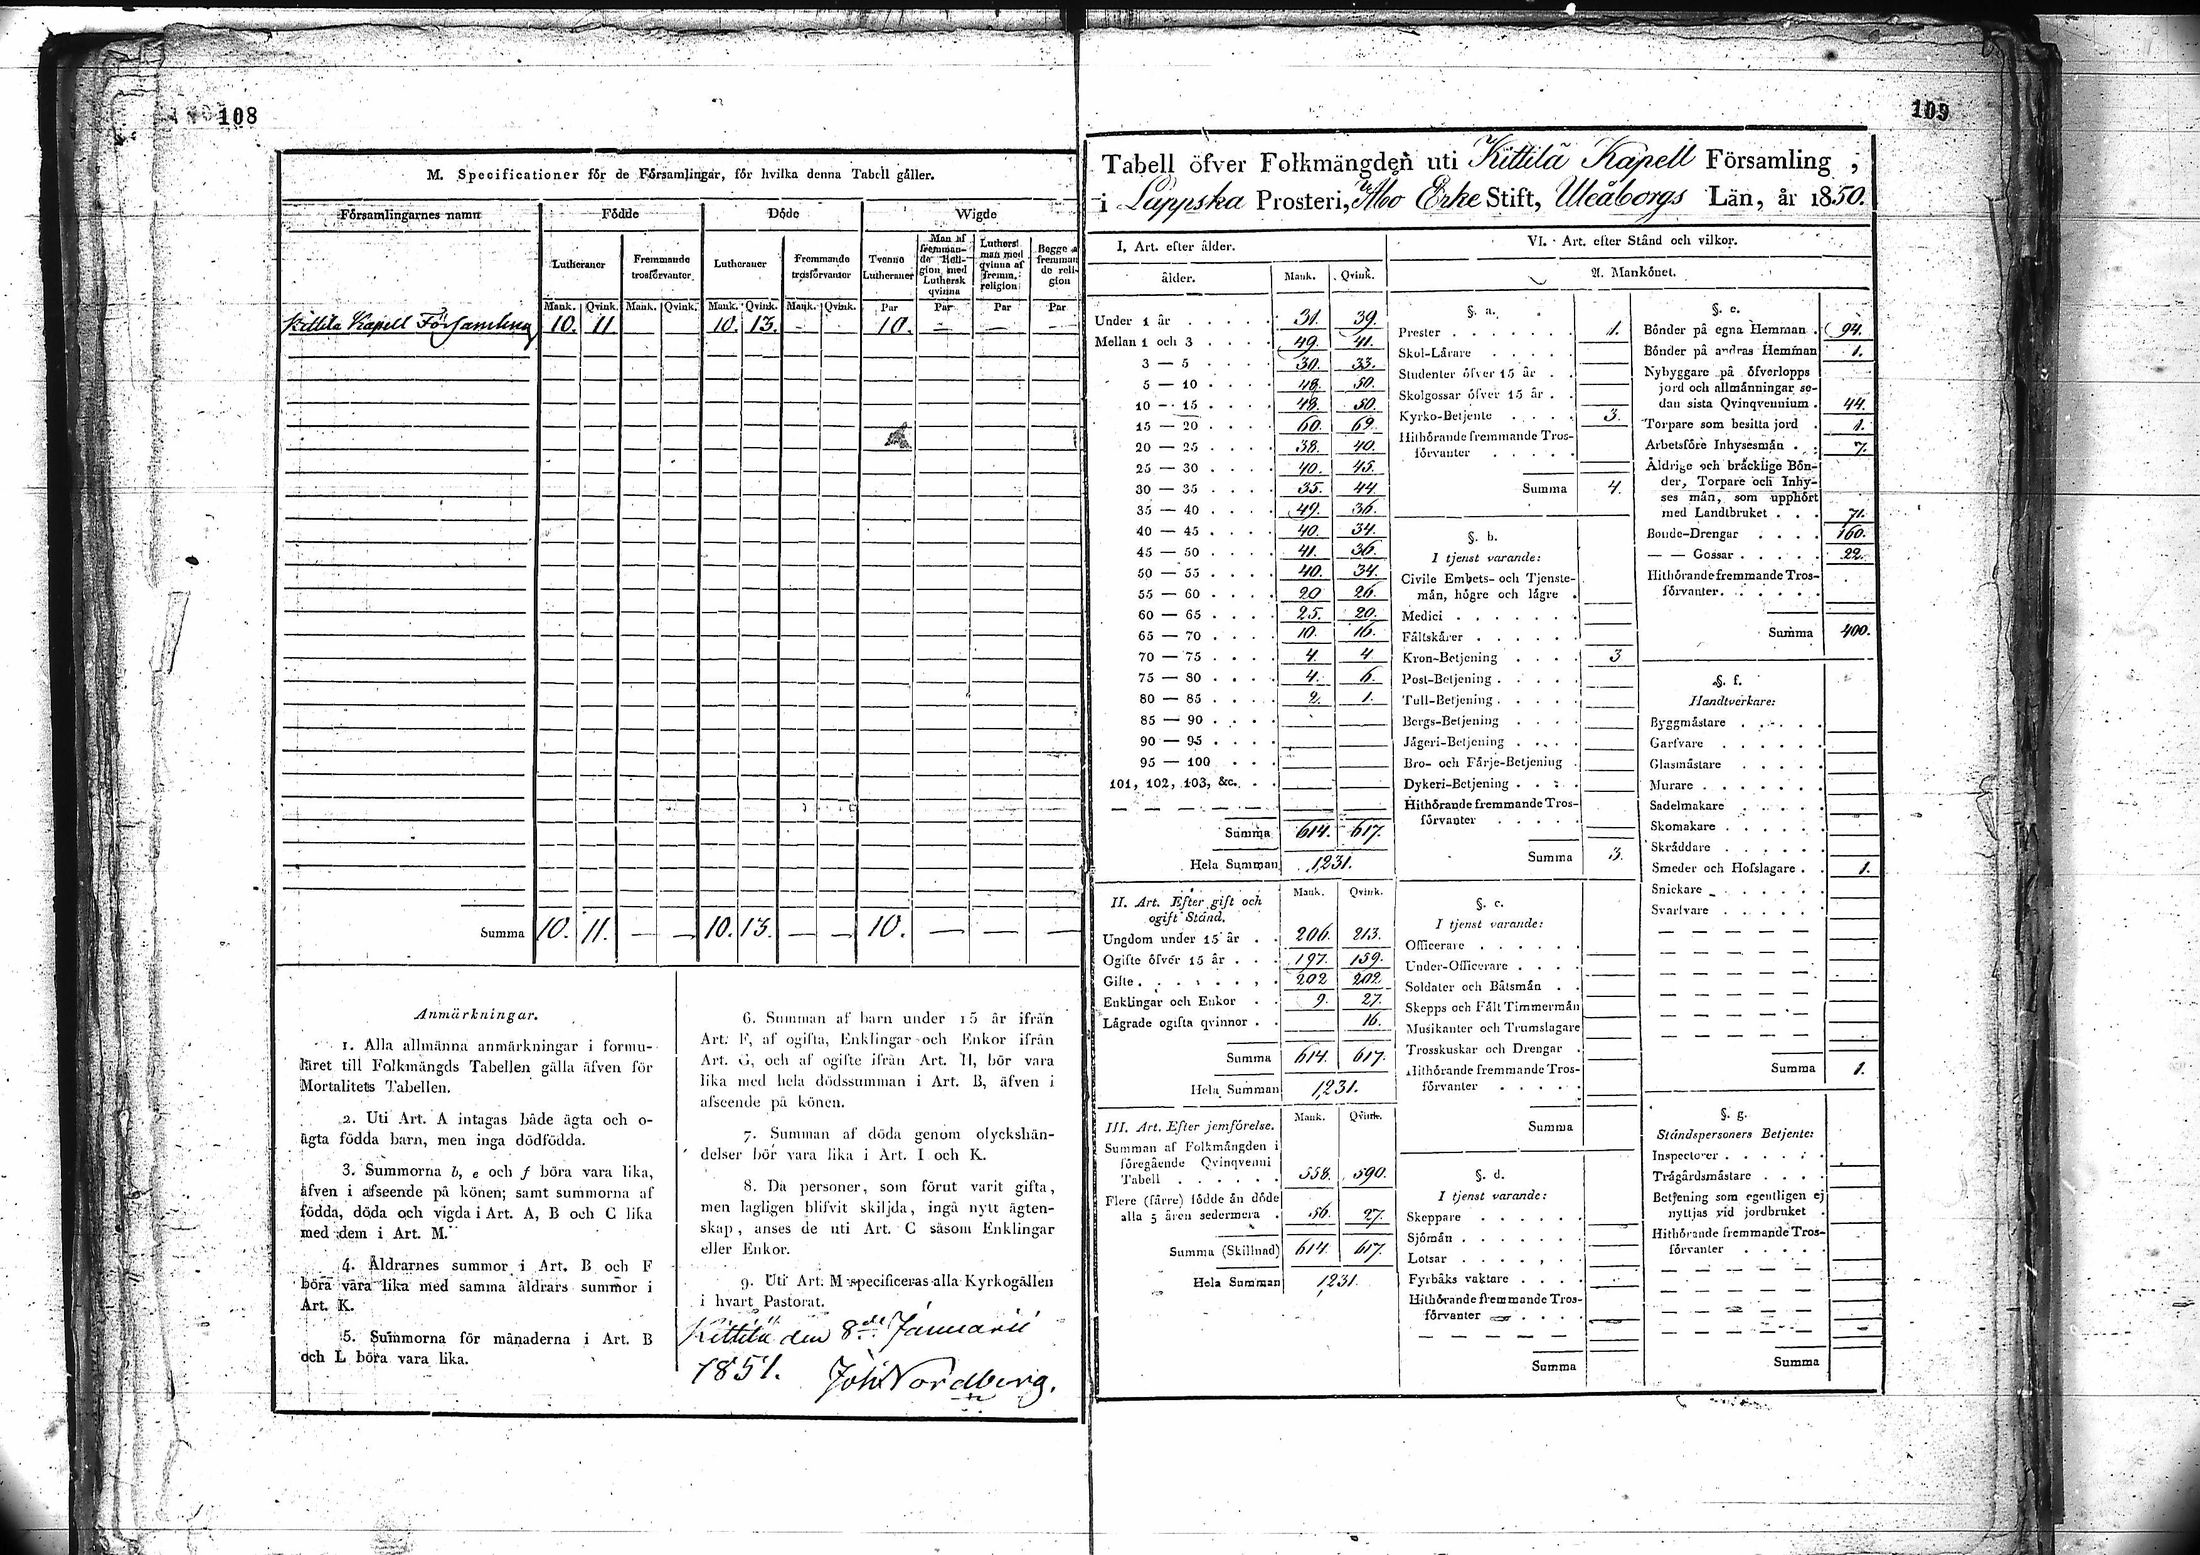 108
M. Specificationer för de Församlingar, för hvilka denna Tabell gäller.
Församlingarnes namn Födde Döde Wigde
Lutheraner Fremmande trosförvanter Lutheraner Fremmande trosförvanter Tvenne Lutheraner Man af fremmande Religion med Luthersk qvinna Luthersk man med qvinna af fremm. religion Begge af fremmande religion
Mank. Qvink. Mank. Qvink. Mank. Qvink. Mank. Qvink. Par Par Par Par
Kittilä Kapell Församling 10. 11. — — 10. 13. — — 10. — — —
Summa 10. 11. — — 10. 13. — — 10. — — —
Anmärkningar.
1. Alla allmänna anmärkningar i formu-
läret till Folkmängds Tabellen gälla äfven för
Mortalitets Tabellen.
2. Uti Art. A intagas både ägta och o-
ägta födda barn, men inga dödfödda.
3. Summorna b, e och f böra vara lika,
äfven i afseende på könen; samt summorna af
födda, döda och vigda i Art. A, B och C lika
med dem i Art. M.
4. Åldrarnes summor i Art. B och F
böra vara lika med samma åldrars summor i
Art. K.
5. Summorna för månaderna i Art. B
och L böra vara lika.
6. Summan af barn under 15 år ifrån
Art. F, af ogifta, Enklingar och Enkor ifrån
Art. G, och af ogifte ifrån Art. H, bör vara
lika med hela dödssumman i Art. B, äfven i
afseende på könen.
7. Summan af döda genom olyckshän-
delser bör vara lika i Art. I och K.
8. Da personer, som förut varit gifta,
men lagligen blifvit skiljda, ingå nytt ägten-
skap, anses de uti Art. C såsom Enklingar
eller Enkor.
9. Uti Art. M specificeras alla Kyrkogällen
i hvart Pastorat.
Kittilä den 8de Januarii
1851. Joh. Nordberg.
109
Tabell öfver Folkmängden uti Kittilä Kapell Församling,
i Lappska Prosteri, Åbo Erke Stift, Uleåborgs Län, år 1850.
I. Art. efter ålder.
ålder. Mank. Qvink.
Under 1 år . . . . . 31. 39.
Mellan 1 och 3 . . . . 49. 41.
3 — 5 . . . . 30. 33.
5 — 10 . . . . 48. 50.
10 — 15 . . . . 48. 50.
15 — 20 . . . . 60. 69.
20 — 25 . . . . 38. 40.
25 — 30 . . . . 40. 45.
30 — 35 . . . . 35. 44.
35 — 40 . . . . 49. 36.
40 — 45 . . . . 40. 34.
45 — 50 . . . . 41. 36.
50 — 55 . . . . 40. 34.
55 — 60 . . . . 20 26.
60 — 65 . . . . 25. 20.
65 — 70 . . . . 10. 16.
70 — 75 . . . . 4. 4.
75 — 80 . . . . 4. 6.
80 — 85 . . . . 2. 1.
85 — 90 . . . .
90 — 95 . . . .
95 — 100 . . .
101, 102, 103, &c. . .
Summa 614. 617.
Hela Summan 1231.
II. Art. Efter gift och
ogift Stånd. Mank. Qvink.
Ungdom under 15 år . . 206. 213.
Ogifte öfver 15 år . . . 197. 159.
Gifte . . . . . . . 202 202.
Enklingar och Enkor . . 9. 27.
Lägrade ogifta qvinnor . . 16.
Summa 614. 617.
Hela Summan 1231.
III. Art. Efter jemförelse. Mank. Qvink.
Summan af Folkmängden i
föregående Qvinqvenni
Tabell . . . . . 558. 590.
Flere (färre) födde än döde
alla 5 åren sedermera . 56. 27.
Summa (Skillnad) 614. 617.
Hela Summan 1231.
VI. Art. efter Stånd och vilkor.
A. Mankönet.
§. a.
Prester . . . . . . 1.
Skol-Lärare . . . . .
Studenter öfver 15 år . .
Skolgossar öfver 15 år . .
Kyrko-Betjente . . . . 3.
Hithörande fremmande Tros-
förvanter . . . . .
Summa 4.
§. b.
I tjenst varande:
Civile Embets- och Tjenste-
män, högre och lägre .
Medici . . . . . . .
Fältskärer . . . . . .
Kron-Betjening . . . . 3
Post-Betjening . . . . .
Tull-Betjening . . . . .
Bergs-Betjening . . . .
Jägeri-Betjening . . . .
Bro- och Färje-Betjening .
Dykeri-Betjening . . . .
Hithörande fremmande Tros-
förvanter . . . . .
Summa 3.
§. c.
I tjenst varande:
Officerare . . . . . .
Under-Officerare . . . .
Soldater och Båtsmän . .
Skepps och Fält Timmermän
Musikanter och Trumslagare
Trosskuskar och Drengar .
Hithörande fremmande Tros-
förvanter . . . . .
Summa
§. d.
I tjenst varande:
Skeppare . . . . . .
Sjömän . . . . . . .
Lotsar . . . . . .
Fyrbåks vaktare . . . .
Hithörande fremmande Tros-
förvanter . . . .
Summa
§. e.
Bönder på egna Hemman . 94.
Bönder på andras Hemman 1.
Nybyggare på öfverlopps
jord och allmänningar se-
dan sista Qvinqvennium . 44.
Torpare som besitta jord . 1.
Arbetsföre Inhysesmän . . 7.
Åldrige och bräcklige Bön-
der, Torpare och Inhy-
ses män, som upphört
med Landtbruket . . . 71.
Bonde-Drengar . . . . 160.
— — Gossar . . . . . 22.
Hithörande fremmande Tros-
förvanter . . . . . .
Summa 400.
§. f.
Handtverkare:
Byggmästare . . . . .
Garfvare . . . . . .
Glasmästare . . . . .
Murare . . . . . . .
Sadelmakare . . . . .
Skomakare . . . . . .
Skräddare . . . . . .
Smeder och Hofslagare . . 1.
Snickare . . . . . .
Svarfvare . . . . . .
Summa 1.
§. g.
Ståndspersoners Betjente:
Inspectorer . . . . . .
Trägårdsmästare . . . .
Betjening som egentligen ej
nyttjas vid jordbruket .
Hithörande fremmande Tros-
förvanter . . . . .
Summa